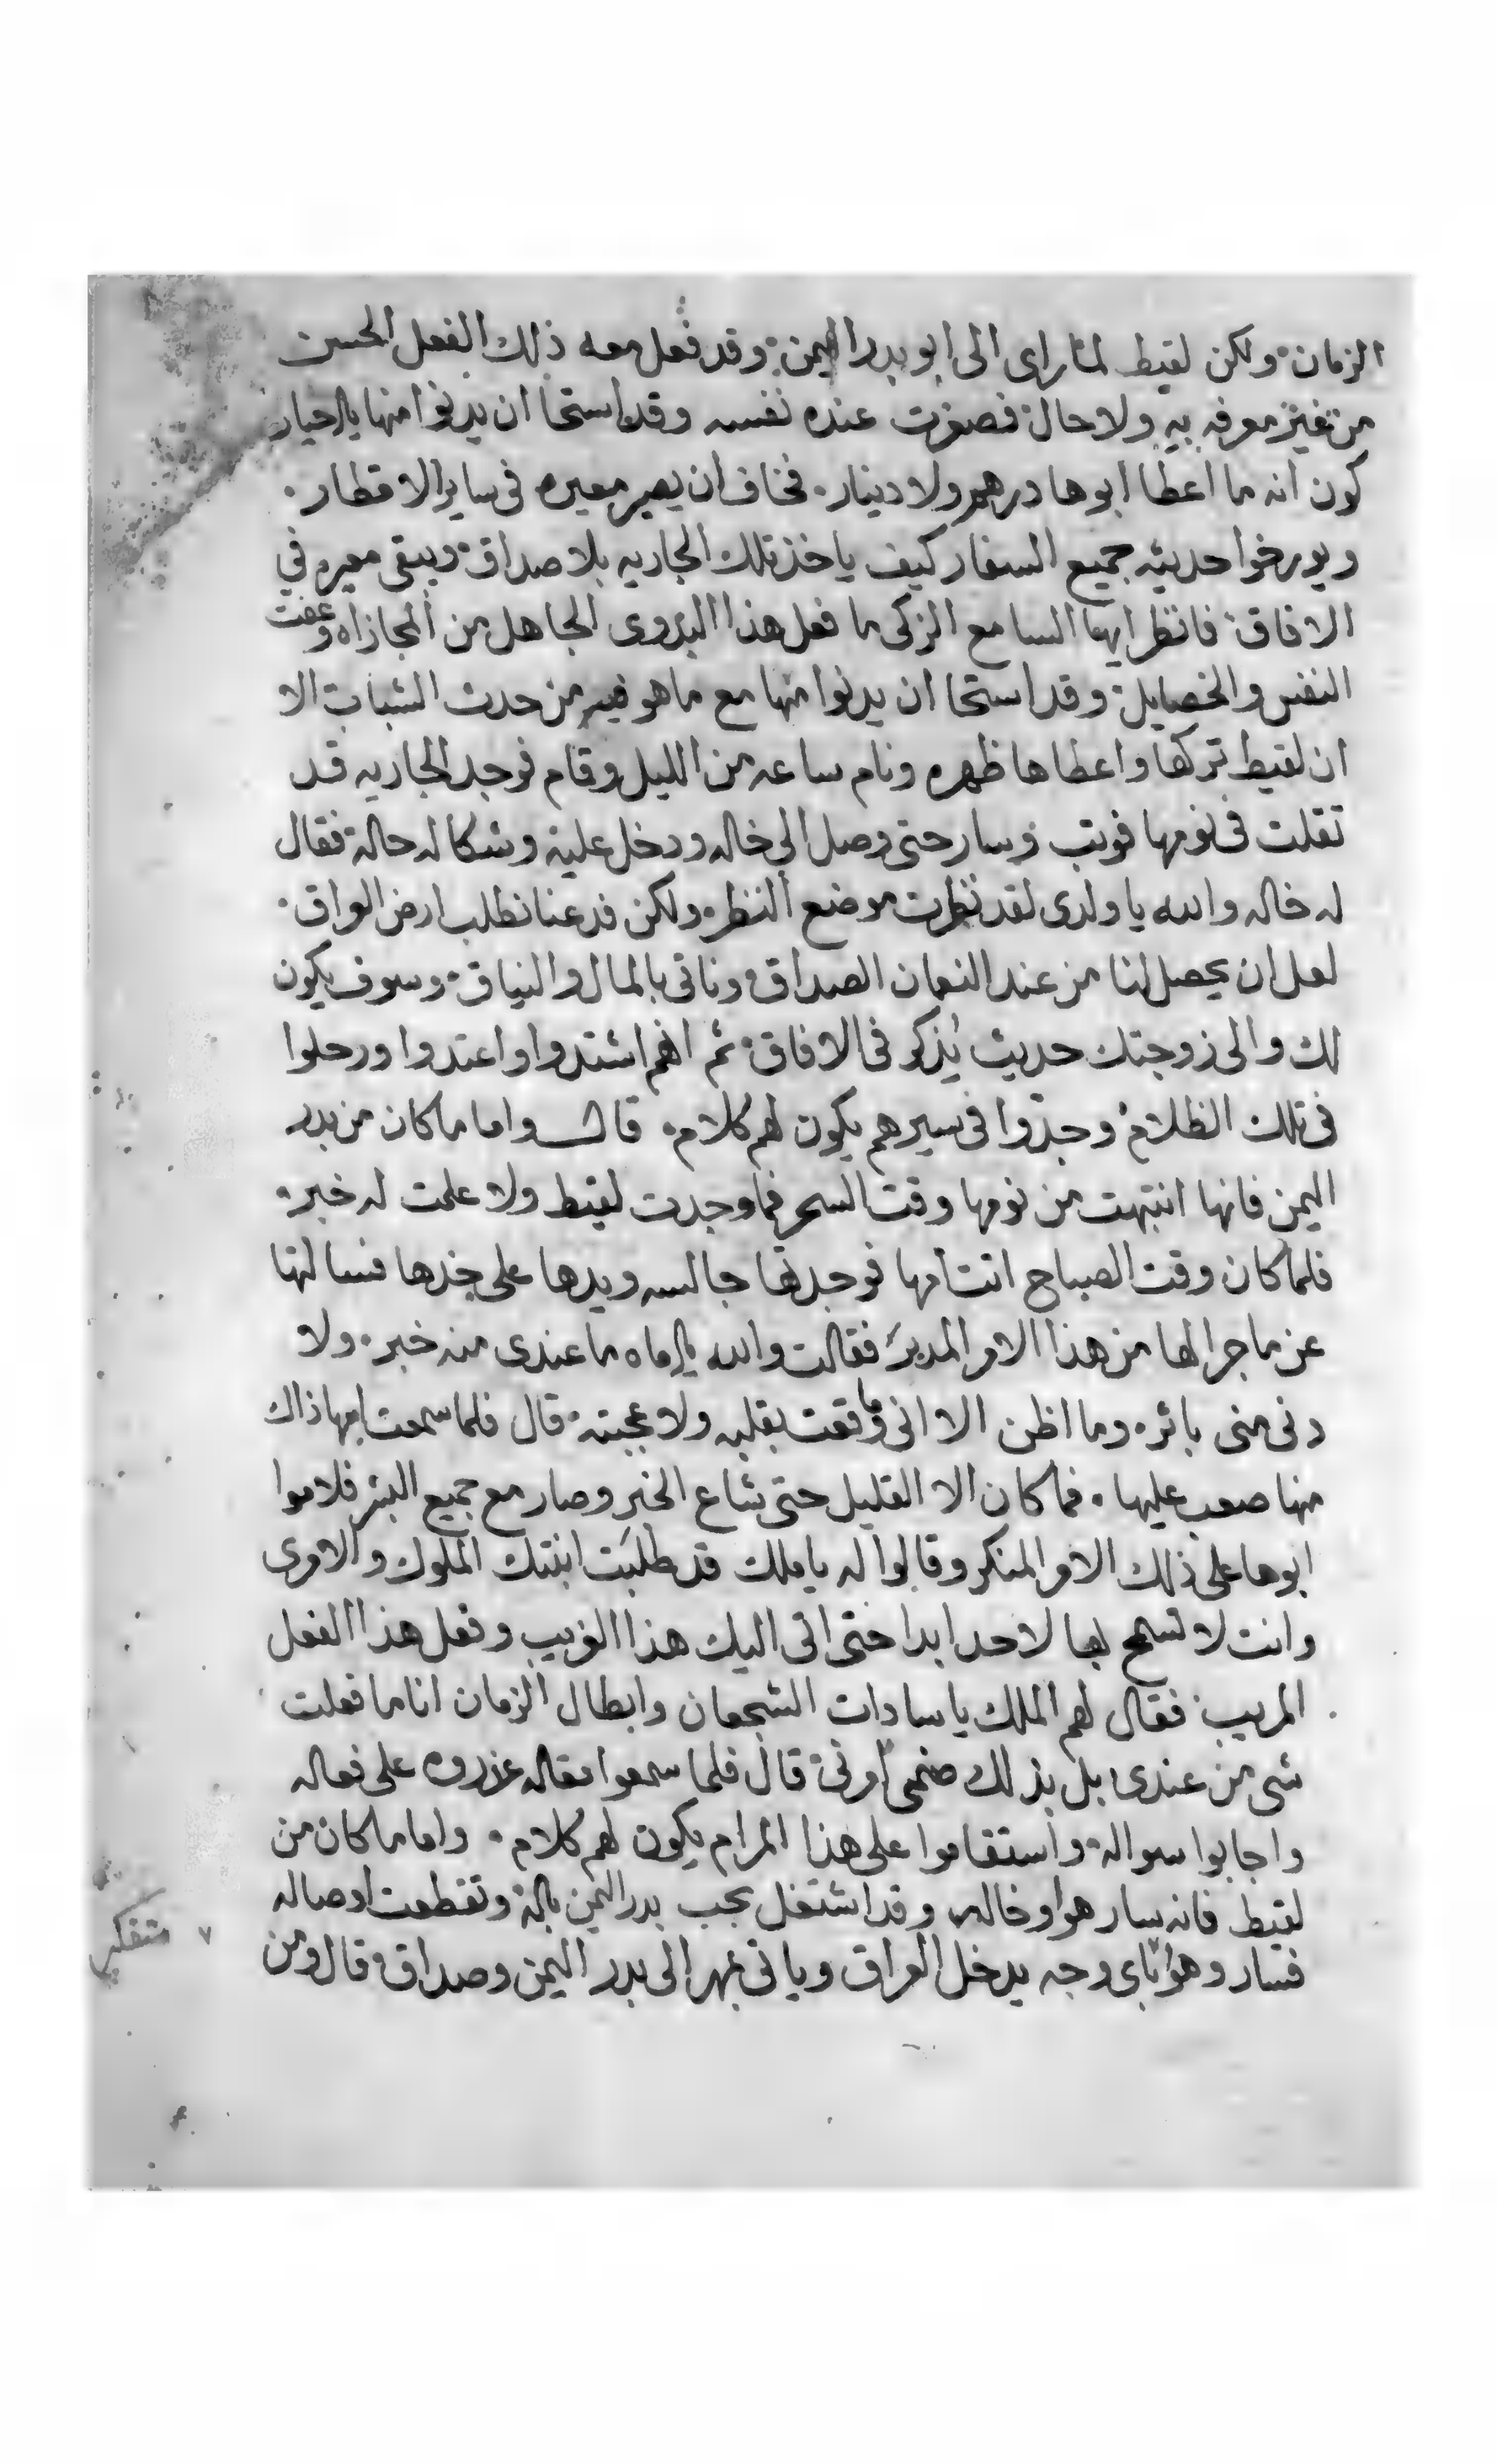 الزمان ولكن لقيط لما راى الى ابو بدر اليمن وقد فعل معه ذلك الفعل الحسن
من غير معرفه به ولا حال فصغرت عنده نفسه وقد استحا ان يدنوا منها يا احيار
كون انه ما اعطا ابوها درهم ولا دينار فخاف ان يصير معيره فى ساير الاقطار
ويورخوا حديثه جميع السفار كيف ياخذ تلك الجاريه بلا صداق ويبقى معيره في
الافاق فانظر ايها السامع الزكى ما فعل هذا البدوى الجاهل من المجازاه وعفت
النفس والخصايل وقد استحا ان يدنوا منها مع ما هو فيه من حدث الشباب الا
ان لقيط تركها واعطاها ظهره ونام ساعه من الليل وقام فوجد الجاريه قد
تقلت فى نومها فوتب وسار حتى وصل الي خاله ودخل عليه وشكا له حالة فقال
له خاله والله يا ولدى لقد نظرت موضع النظر ولكن فدعنا نطلب ارض العراق
لعل ان يحصل لنا من عند النعمان الصداق وناتى بالمال والنياق وسوف يكون
لك والى زوجتك حديث يذكر فى الافاق ثم انهم اشتدوا واعتدوا ورحلوا
فى تلك الظلام وجدوا فى سيرهم يكون لهم كلام قال واما ما كان من بدر
اليمن فانها انتبهت من نومها وقت السحر فما وجدت لقيط ولا علمت له خبر
فلما كان وقت الصباح اتت امها فوجدتها جالسه ويدها على خدها فسالتها
عن ما جرا لها من هذا الامر المدبر فقالت والله يا اماه ما عندى منه خبر ولا
دنى منى باثر وما اظن الا انى ما وقعت بقلبه ولا عجبته قال فلما سمعت امها ذاك
منها صعب عليها فما كان الا القليل حتى شاع الخبر وصار مع جميع البشر فلاموا
ابوها على ذلك الامر المنكر وقالوا له يا ملك قد طلبت ابنتك الملوك والامرى
وانت لا تسمح بها لاحد ابدا حتى اتى اليك هذا الغريب وفعل هذا الفعل
المريب فقال لهم الملك يا سادات الشجعان وابطال الزمان انا ما فعلت
شى من عندى بل بذلك صنمى امرنى قال فلما سمعوا مقاله عزروه على فعاله
واجابوا سواله واستقاموا على هذا المرام يكون لهم كلام واما ما كان من
لقيط فانه سار هو وخاله وقد اشتغل بحب بدر اليمن باله وتقطعت اوصاله
فسار وهو باى وجه يدخل العراق وياتى بمهر الى بدر اليمن وصداق قال ومن
٧ متفكر